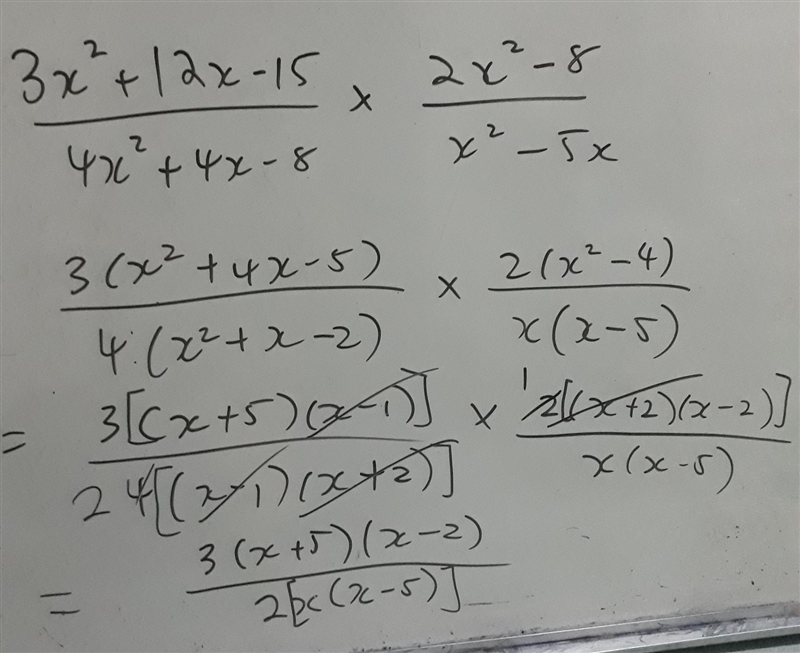 3x² + 12x - 15 / 4x² + 4x - 8 × 2x² - 8 / x² - 5x
3(x² + 4x - 5) / 4(x² + x - 2) × 2(x² - 4) / x(x - 5)
= 3[(x + 5)(x - 1)] / 2 4[(x - 1)(x + 2)] × 1 2[(x + 2)(x - 2)] / x(x - 5)
= 3(x + 5)(x - 2) / 2[x(x - 5)]